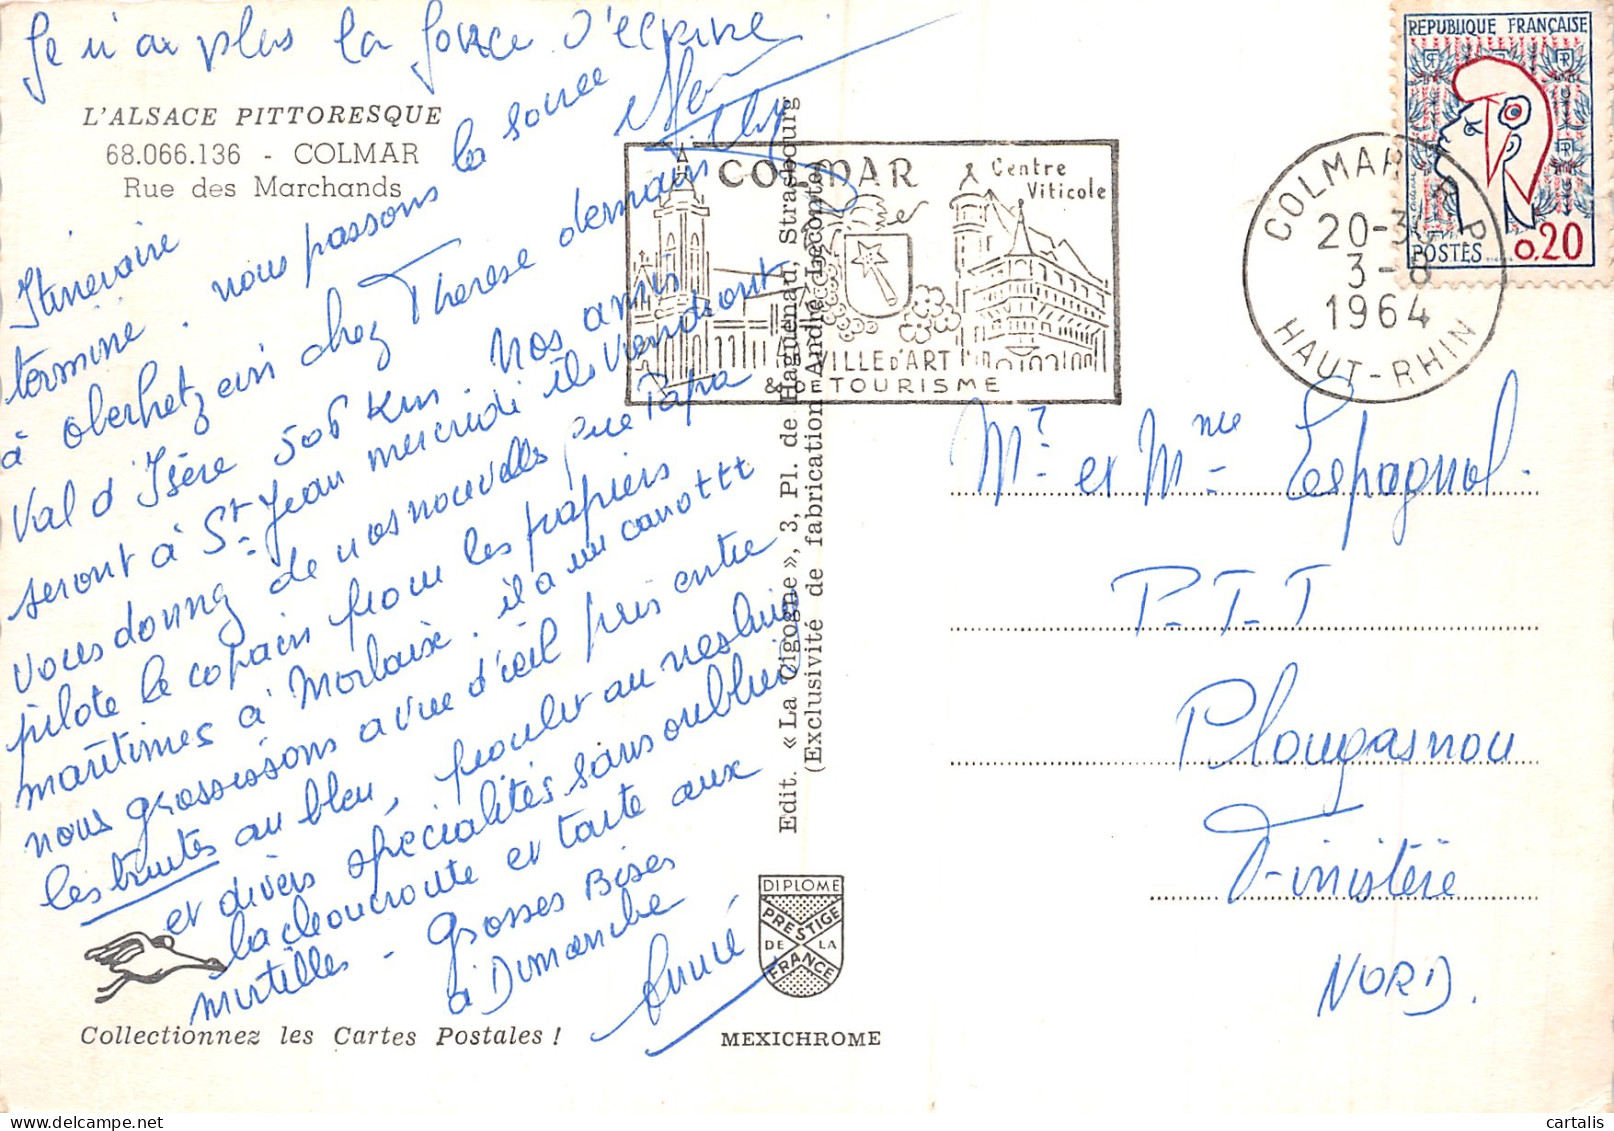 Je n'ai plus la force d'écrire
L'ALSACE PITTORESQUE
68.066.136 - COLMAR
Rue des Marchands
Itineraire
terminé. nous passons la soirée
à oberhetzein chez Therese demain
Val d'Isère 506 km. Nos amis
seront à St Jean mercredi ils viendront
vous donner de nos nouvelles que Papa
pilote le copain pour les papiers
maritimes à Morlaix. il a un canot ttt
nous grossissons a vue d'œil pris entre
les truites au bleu, poulet au
et divers spécialités sans oublier
la choucroute et tarte aux
mirtilles - Grosses Bises
à Dimanche
Collectionnez les Cartes Postales !
Edit. « La Cigogne », 3, Pl. de Haguenau, Strasbourg
(Exclusivité de fabrication André Leconte)
DIPLOME
PRESTIGE
DE LA
FRANCE
MEXICHROME
COLMAR
Centre
Viticole
VILLE D'ART
& DE TOURISME
COLMAR R.P
20-3
3-8
1964
HAUT-RHIN
REPUBLIQUE FRANÇAISE
RF
POSTES 0.20
Mr et Mme Espagnol.
P.T.T
Plougasnou
Finistère
NORD.
cartalis